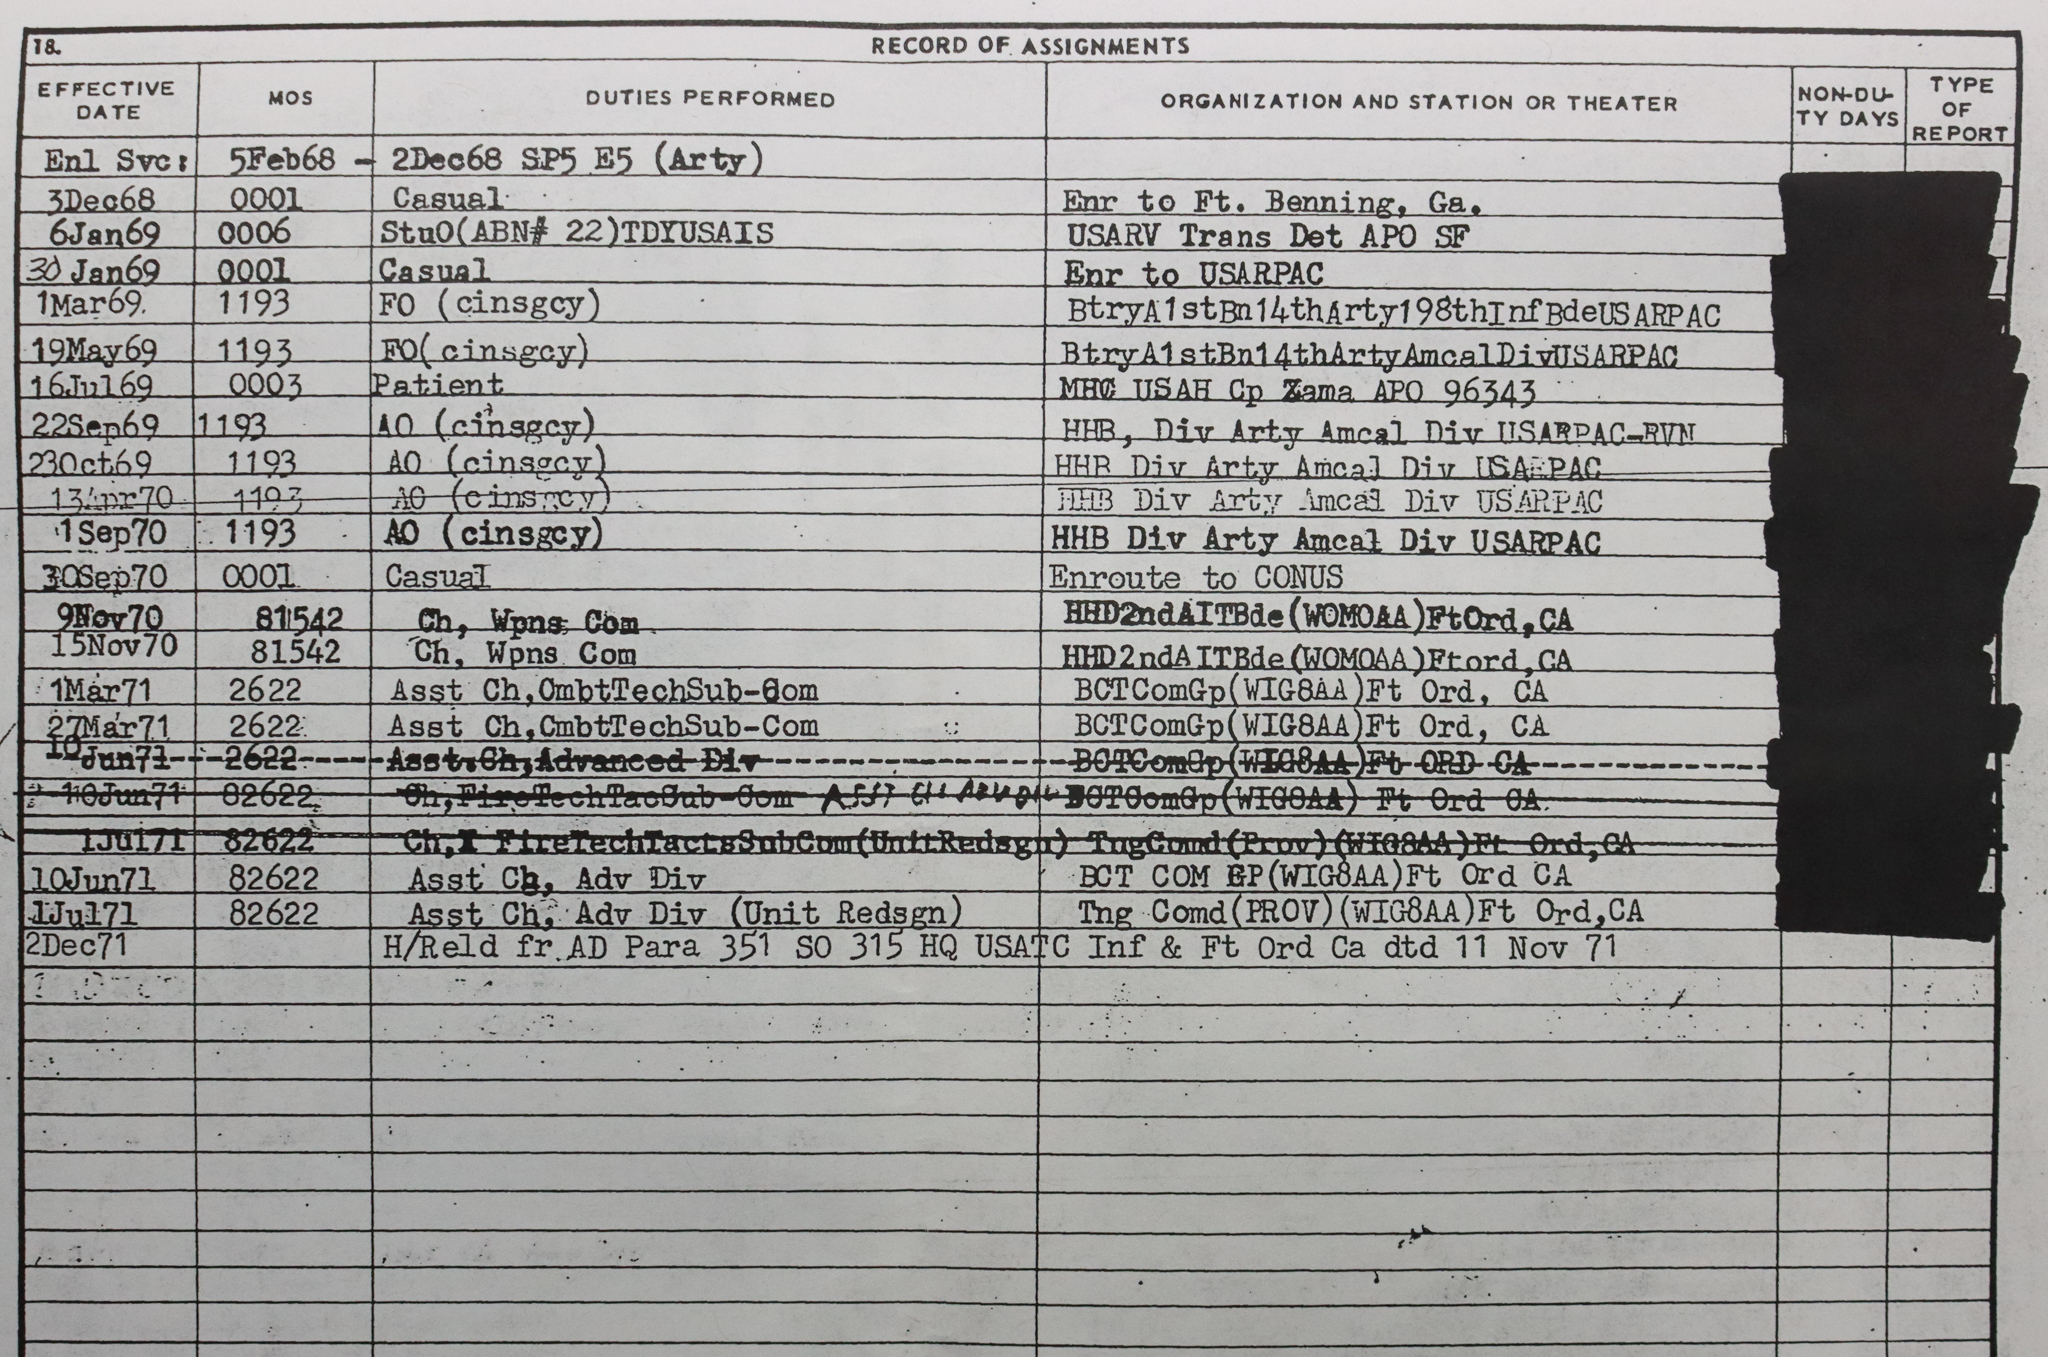 18. RECORD OF ASSIGNMENTS
EFFECTIVE DATE MOS DUTIES PERFORMED ORGANIZATION AND STATION OR THEATER NON-DU-TY DAYS TYPE OF REPORT
Enl Svc: 5Feb68 - 2Dec68 SP5 E5 (Arty)
3Dec68 0001 Casual Enr to Ft. Benning, Ga.
6Jan69 0006 StuO(ABN# 22)TDYUSAIS USARV Trans Det APO SF
30 Jan69 0001 Casual Enr to USARPAC
1Mar69. 1193 FO (cinsgcy) BtryA1stBn14thArty198thInfBdeUSARPAC
19May69 1193 FO(cinsgcy) BtryA1stBn14thArtyAmcalDivUSARPAC
16Jul69 0003 Patient MHC USAH Cp Zama APO 96343
22Sep69 1193 AO (cinsgcy) HHB, Div Arty Amcal Div USARPAC-RVN
23Oct69 1193 AO (cinsgcy) HHB Div Arty Amcal Div USARPAC
13Apr70 1193 AO (cinsgcy) HHB Div Arty Amcal Div USARPAC
1Sep70 1193 AO (cinsgcy) HHB Div Arty Amcal Div USARPAC
30Sep70 0001 Casual Enroute to CONUS
9Nov70 81542 Ch, Wpns Com HHD2ndAITBde(WOMOAA)FtOrd,CA
15Nov70 81542 Ch, Wpns Com HHD2ndAITBde(WOMOAA)Ftord,CA
1Mar71 2622 Asst Ch,CmbtTechSub-Com BCTComGp(WIG8AA)Ft Ord, CA
27Mar71 2622 Asst Ch,CmbtTechSub-Com BCTComGp(WIG8AA)Ft Ord, CA
10Jun71 2622 Asst.Ch,Advanced Div BCTComGp(WIG8AA)Ft ORD CA
10Jun71 82622 Ch,FireTechTacSub-Com ASST CH BCTComGp(WIG8AA) Ft Ord CA
1Jul71 82622 Ch, FireTechTactsSubCom(UnitRedsgn) TngComd(Prov)(WIG8AA)Ft Ord,CA
10Jun71 82622 Asst Ch, Adv Div BCT COM GP(WIG8AA)Ft Ord CA
1Jul71 82622 Asst Ch, Adv Div (Unit Redsgn) Tng Comd(PROV)(WIG8AA)Ft Ord,CA
2Dec71 H/Reld fr AD Para 351 SO 315 HQ USATC Inf & Ft Ord Ca dtd 11 Nov 71